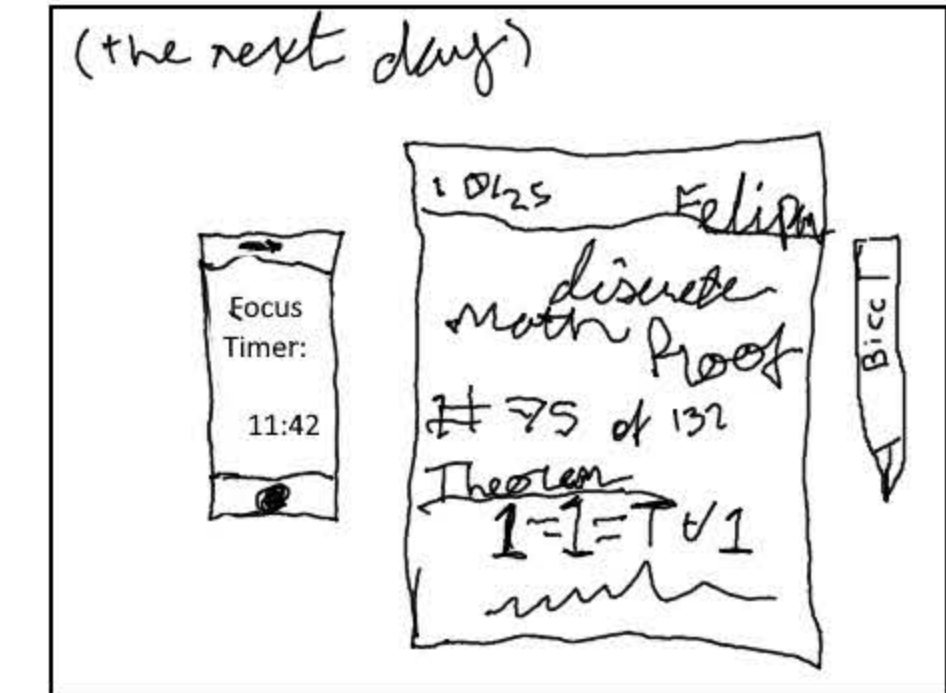 (the next day)
10/25
Focus
Timer:
11:42
discrete
Math Proof
# 75 of 132
Theorem
1=1=T ∀ 1
Bicc